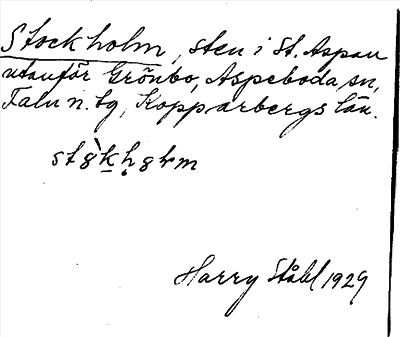 Stockholm, sten i St. Aspan
utanför Grönbo, Aspeboda sn,
Falu n. tg, Kopparbergs län.
Harry Ståhl 1929